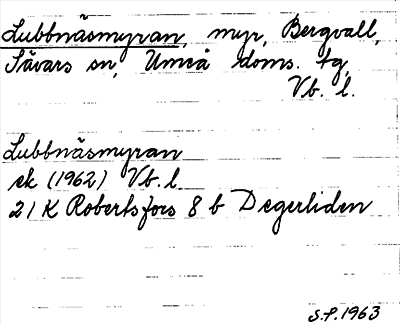 Lubbnäsmyran, myr, Bergvall,
Sävars sn, Umeå doms. tg,
Vb. l.
Lubbnäsmyran
ek (1962) Vb. l
21 K Robertsfors 8 b Degerliden
S.P. 1963